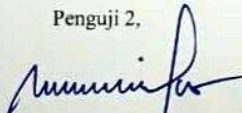 Penguji 2,